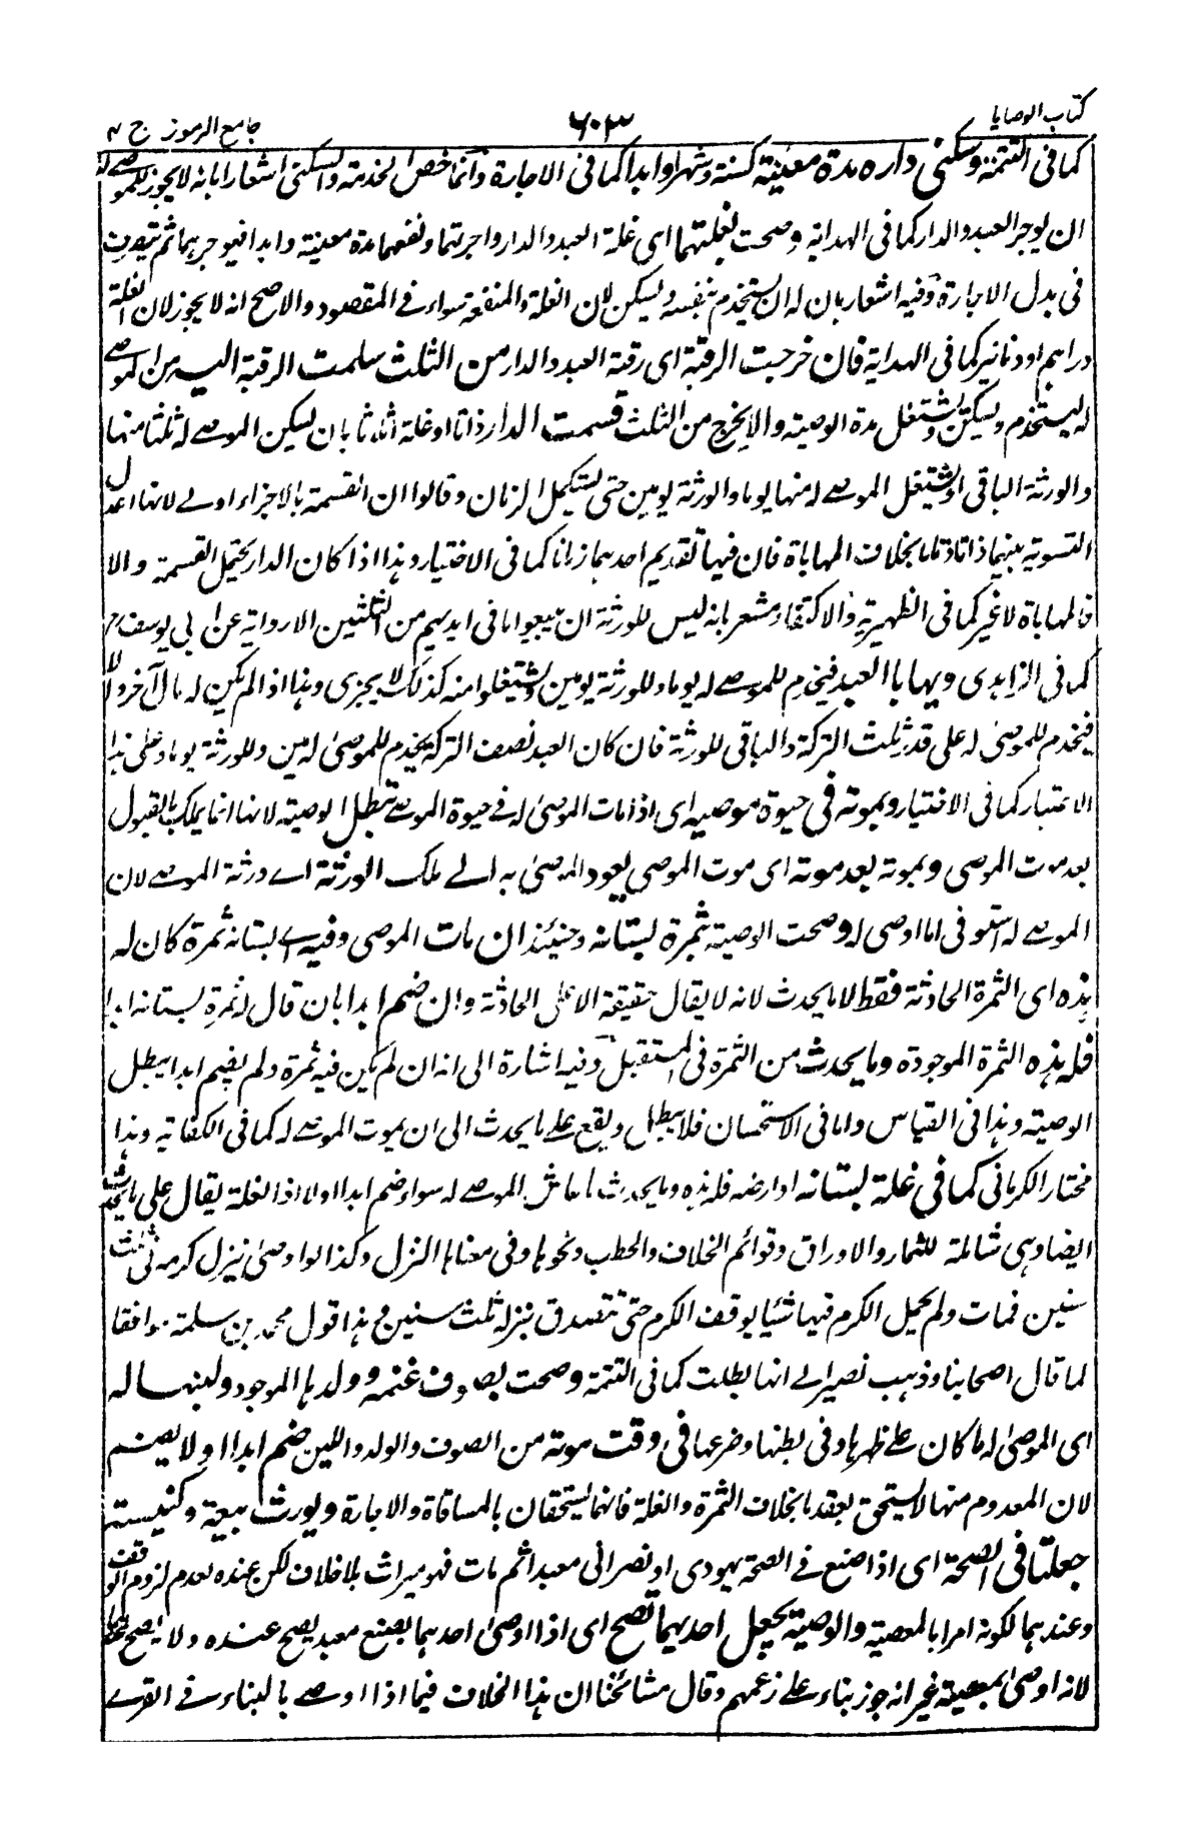 كتاب الوصايا
٦٠٣
جامع الرموز ج ٢
كما فى التتمة وسكنى داره مدة معينة كسنة وشهر او ابدا كما فى الاجارة وانما خص الخدمة والسكنى اشعارا بانه لا يجوز للموصى له
ان يوجر العبد والدار كما فى الهداية وصحت بغلتهما اى غلة العبد والدار واجرتهما ونفعهما مدة معينة وابدا فيوجرهما ثم يتصرف
فى بدل الاجارة وفيه اشعار بان له ان يستخدم بنفسه ويسكن لان الغلة والمنفعة سواء فى المقصود والاصح انه لا يجوز لان الغلة
دراهم او دنانير كما فى الهداية فان خرجت الرقبة اى رقبة العبد والدار من الثلث سلمت الرقبة اليه من الموصى
له ليستخدم ويسكن ويستغل مدة الوصية والا يخرج من الثلث قسمت الدار ذاتا او غلة اثلاثا بان يسكن الموصى له ثلثا منها
والورثة الباقى او يستغل الموصى له منها يوما والورثة يومين حتى يستكمل الزمان وقالوا ان القسمة بالاجزاء اولى لانها اعدل
التسوية بينهما ذاتا وزمانا بخلاف المهاباة فان فيها تقديم احدهما زمانا كما فى الاختيار وهذا اذا كان الدار يحتمل القسمة والا
فالمهاباة لا غير كما فى الظهيرية والاكتفاء مشعر بانه ليس للورثة ان يبيعوا ما فى ايديهم من الثلثين الا رواية عن ابى يوسف رح
كما فى الزاهدى ويهابا العبد فيخدم للموصى له يوما وللورثة يومين ويستغلوا منه كذلك لا يجزى وهذا اذا لم يكن له مال آخر والا
فيخدم للموصى له على قدر ثلث التركة والباقى للورثة فان كان العبد نصف التركة يخدم للموصى له يومين وللورثة يوما وعلى هذا
الاعتبار كما فى الاختيار وبموته فى حيوة موصيه اى اذا مات الموصى له فى حيوة الموصى تبطل الوصية لانها انما يملك بالقبول
بعد موت الموصى وبموته بعد موته اى موت الموصى يعود الموصى به الى ملك الورثة اى ورثة الموصى لان
الموصى له استوفى ما اوصى له وصحت الوصية بثمرة بستانه وحينئذ ان مات الموصى وفيه اى بستانه ثمرة كان له
هذه اى الثمرة الحادثة فقط لا ما يحدث لانه لا يقال حقيقة الا على الحادثة وان ضم ابدا بان قال له ثمرة بستانه ابدا
فله هذه الثمرة الموجودة وما يحدث من الثمرة فى المستقبل وفيه اشارة الى انه ان لم يكن فيه ثمرة ولم يضم ابدا يبطل
الوصية وهذا فى القياس واما فى الاستحسان فلا يبطل ويقع على ما يحدث الى ان يموت الموصى له كما فى الكفاية وهذا
مختار الكرمانى كما فى غلة بستانه او ارضه فله هذه وما يحدث ما عاش الموصى له سواء ضم ابدا او لا اذ الغلة يقال على ما يحدث
ايضا وهى شاملة للثمار والاوراق وقوائم الخلاف والحطب ونحوها وفى معناها النزل وكذا لو اوصى بنزل كرمه ثلث
سنين فمات ولم يحمل الكرم فيها شيئا يوقف الكرم حتى تتصدق بنزله ثلث سنين وهذا قول محمد بن سلمة موافقا
لما قال اصحابنا وذهب نصير الى انها بطلت كما فى التتمة وصحت بصوف غنمه وولدها الموجود ولبنها له
اى الموصى له ما كان على ظهرها وفى بطنها وضرعها فى وقت موته من الصوف والولد واللبن ضم ابدا او لا يضم
لان المعدوم منها لا يستحق بعقد بخلاف الثمرة والغلة فانهما يستحقان بالمساقاة والاجارة ويورث بيعة وكنيسة
جعلتا فى الصحة اى اذا صنع فى الصحة يهودى او نصرانى معبدا ثم مات فهو ميراث بلا خلاف لكن عنده لعدم لزوم الوقف
وعندهما لكونه امرا بالمعصية والوصية بجعل احديهما تصح اى اذا اوصى احدهما بصنع معبد يصح عنده ولا يصح عندهما
لانه اوصى بمعصية غير انه جوز بناء على زعمهم وقال مشائخنا ان هذا الخلاف فيما اذا اوصى بالبناء فى القرى